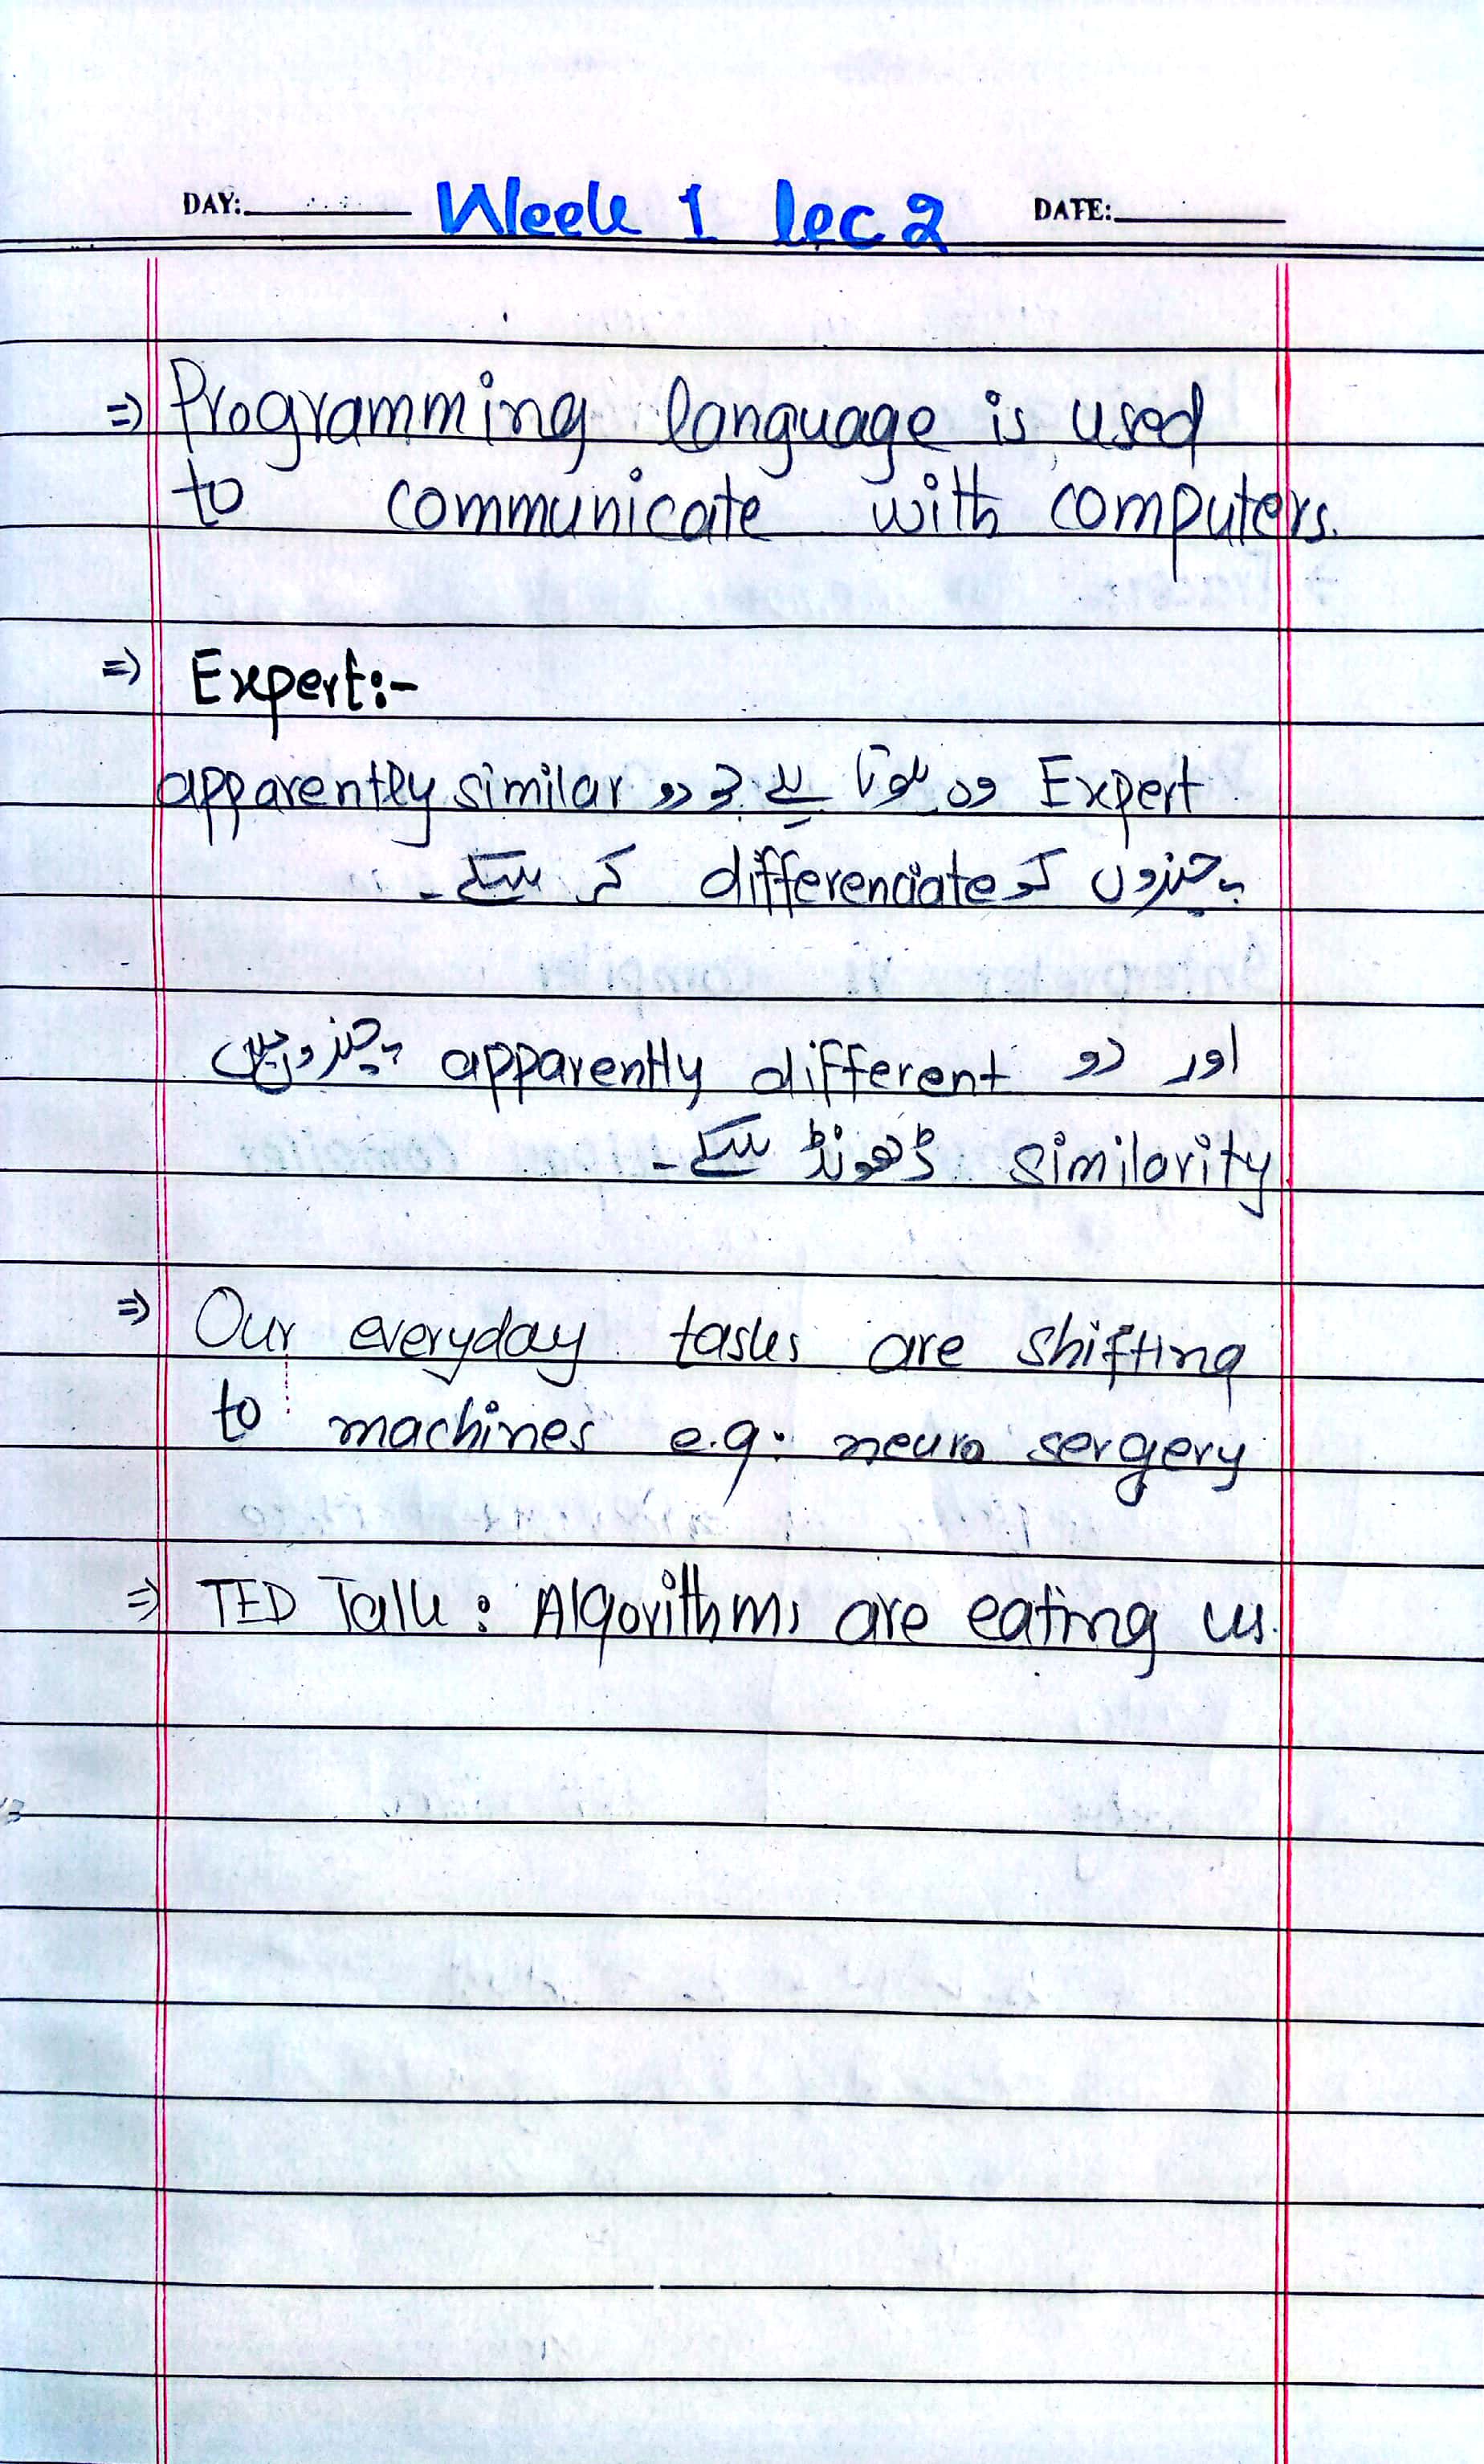 DAY: Week 1 lec 2 DATE:
=> Programming language is used
to communicate with computers.
=> Expert:-
Expert وہ ہوتا ہے جو دو apparently similar
چیزوں کو differenciate کر سکے۔
اور دو apparently different چیزوں میں
similarity ڈھونڈ سکے۔
=> Our everyday tasks are shifting
to machines e.g. neuro sergery
=> TED Talk : Algorithms are eating us.